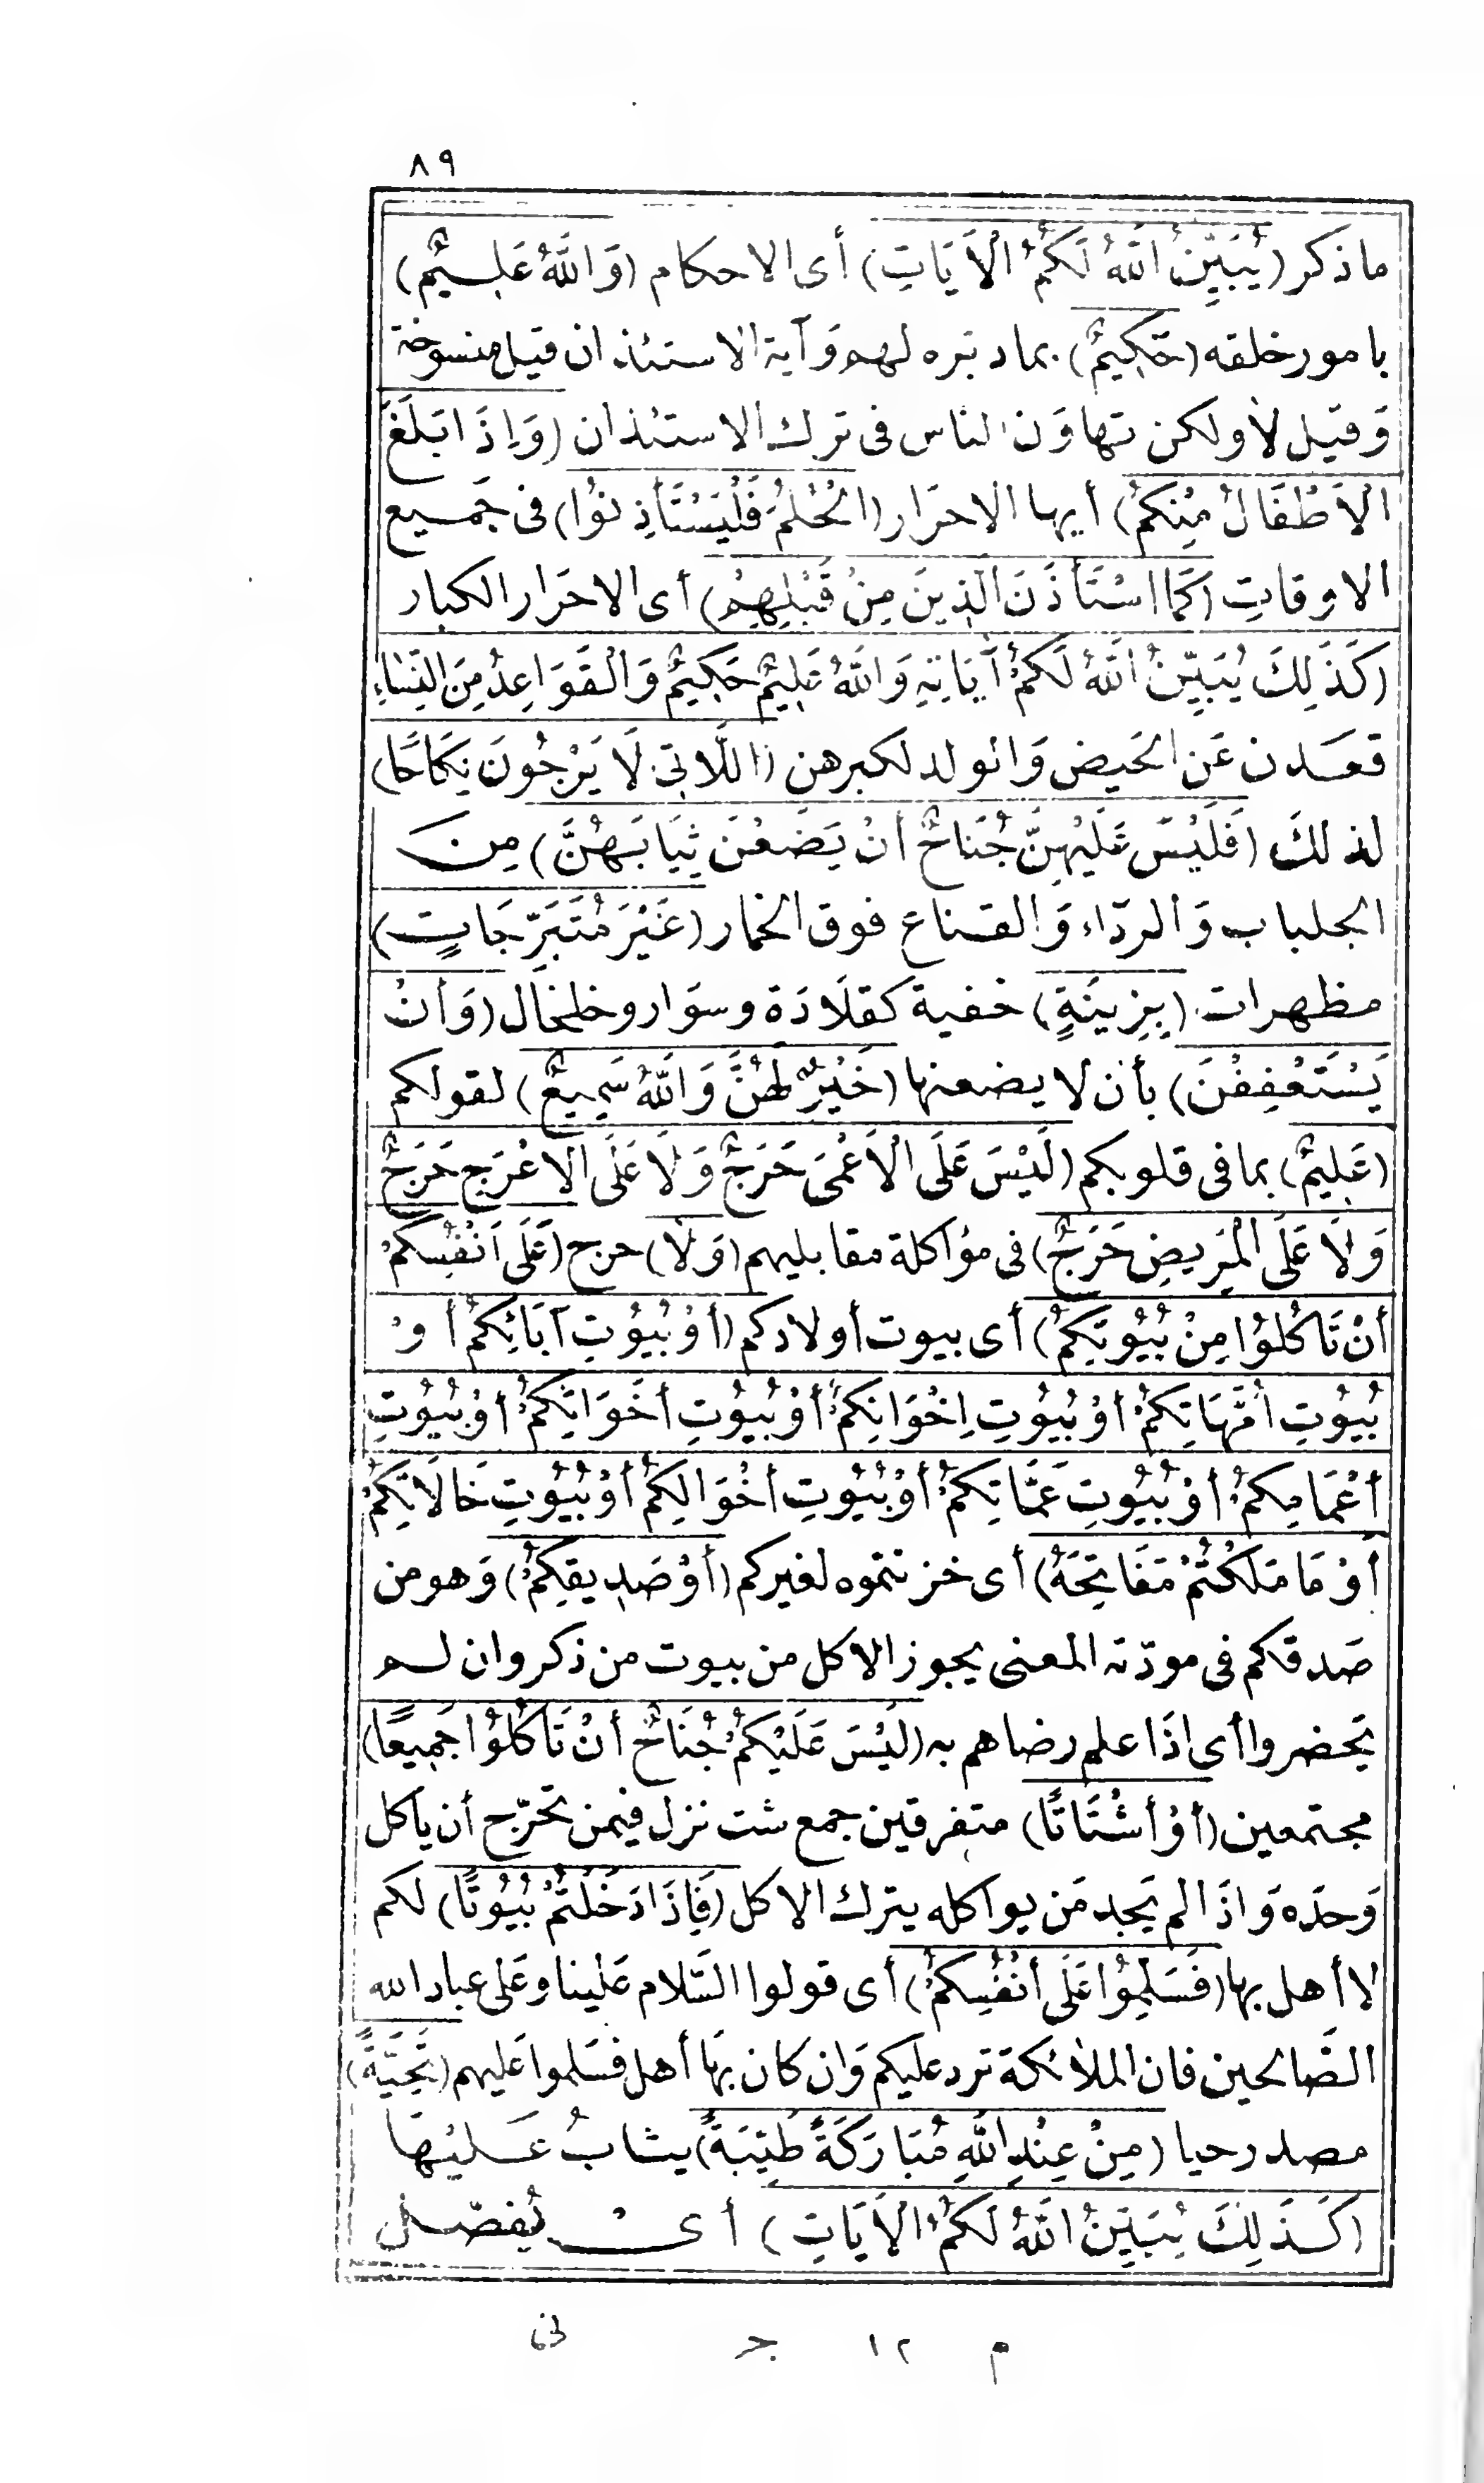 ٨٩
ما ذكر (يُبَيِّنُ اللَّهُ لَكُمُ الْآيَاتِ) أى الاحكام (وَاللَّهُ عَلِيمٌ)
بامور خلقه (حَكِيمٌ) بما دبره لهم وَآية الاستئذان قيل منسوخة
وَقيل لا ولكن تهاوَن الناس فى ترك الاستئذان (وَإِذَا بَلَغَ
الْأَطْفَالُ مِنْكُمُ) أيها الاحرَار (الْحُلُمَ فَلْيَسْتَأْذِنُوا) فى جَميع
الاوقاتِ (كَمَا اسْتَأْذَنَ الَّذِينَ مِنْ قَبْلِهِمْ) أى الاحرَار الكبار
(كَذَلِكَ يُبَيِّنُ اللَّهُ لَكُمْ آيَاتِهِ وَاللَّهُ عَلِيمٌ حَكِيمٌ وَالْقَوَاعِدُ مِنَ النِّسَاءِ
قعَدن عَن الحَيض وَالولد لكبرهن (اللَّاتِي لَا يَرْجُونَ نِكَاحًا)
لذلكَ (فَلَيْسَ عَلَيْهِنَّ جُنَاحٌ أَنْ يَضَعْنَ ثِيَابَهُنَّ) مِن
الجلباب وَالردَاء وَالقناع فوق الخمار (غَيْرَ مُتَبَرِّجَاتٍ)
مظهرات (بِزِينَةٍ) خفية كقلَادَة وسوَار وخلخال (وَأَنْ
يَسْتَعْفِفْنَ) بأن لا يضعنها (خَيْرٌ لَهُنَّ وَاللَّهُ سَمِيعٌ) لقولكم
(عَلِيمٌ) بما فى قلوبكم (لَيْسَ عَلَى الْأَعْمَى حَرَجٌ وَلَا عَلَى الْأَعْرَجِ حَرَجٌ
وَلَا عَلَى الْمَرِيضِ حَرَجٌ) فى مؤاكلة مقابليهم (وَلَا) حرج (عَلَى أَنْفُسِكُمْ
أَنْ تَأْكُلُوا مِنْ بُيُوتِكُمْ) أى بيوت أولادكم (أَوْ بُيُوتِ آبَائِكُمْ أَوْ
بُيُوتِ أُمَّهَاتِكُمْ أَوْ بُيُوتِ إِخْوَانِكُمْ أَوْ بُيُوتِ أَخَوَاتِكُمْ أَوْ بُيُوتِ
أَعْمَامِكُمْ أَوْ بُيُوتِ عَمَّاتِكُمْ أَوْ بُيُوتِ أَخْوَالِكُمْ أَوْ بُيُوتِ خَالَاتِكُمْ
أَوْ مَا مَلَكْتُمْ مَفَاتِحَهُ) أى خزنتموه لغيركم (أَوْ صَدِيقِكُمْ) وَهو من
صَدقكم فى مودّته المعنى يجوز الاكل من بيوت من ذكر وان لم
يَحضروا أى اذَا علم رضاهم به (لَيْسَ عَلَيْكُمْ جُنَاحٌ أَنْ تَأْكُلُوا جَمِيعًا)
مجتمعين (أَوْ أَشْتَاتًا) متفرقين جمع شت نزل فيمن تحرّج أن ياكل
وَحدَه وَاذَا لم يَجد مَن يواكله يترك الاكل (فَإِذَا دَخَلْتُمْ بُيُوتًا) لكم
لا أهل بها (فَسَلِّمُوا عَلَى أَنْفُسِكُمْ) أى قولوا السَّلام عَلينا وعَلى عباد الله
الصَّالحين فان الملائكة ترد عليكم وَان كان بهَا أهل فسَلموا عَليهم (تَحِيَّةً)
مصدر حيا (مِنْ عِنْدِ اللَّهِ مُبَارَكَةً طَيِّبَةً) يثابُ عَليْهَا
(كَذَلِكَ يُبَيِّنُ اللَّهُ لَكُمُ الْآيَاتِ) أى يُفصّل
م ١٢ جـ نى